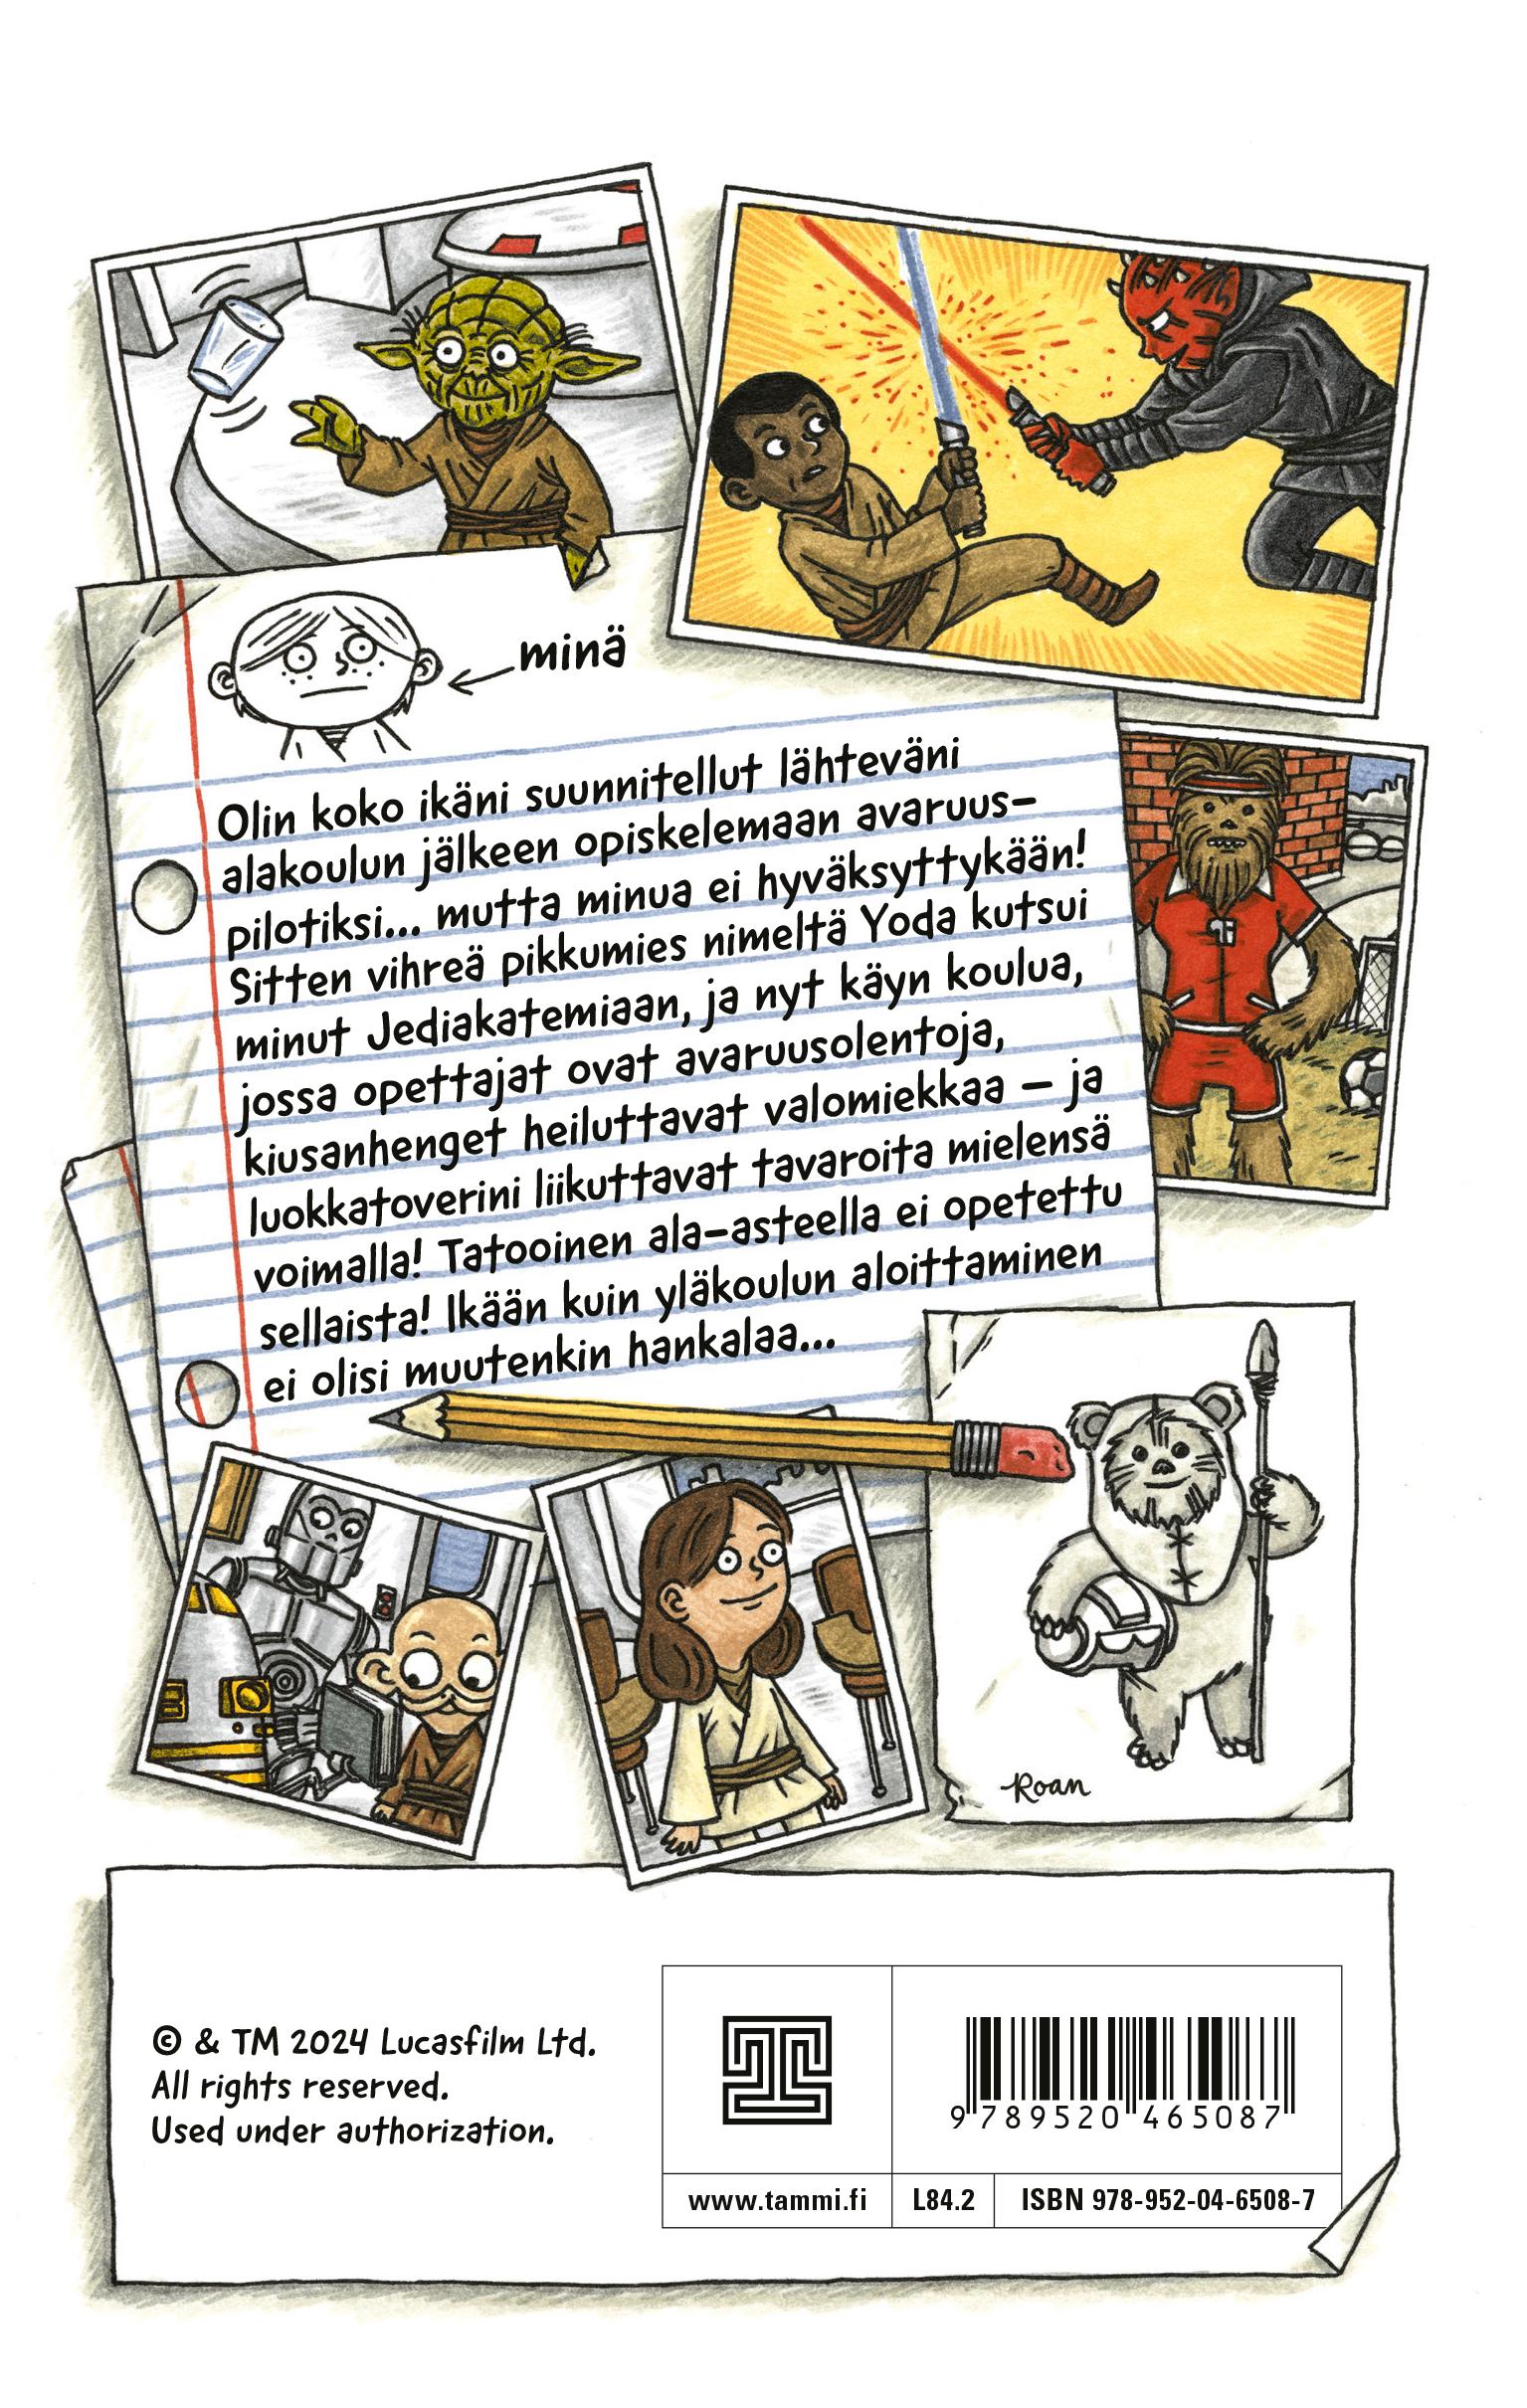 minä
Olin koko ikäni suunnitellut lähteväni
alakoulun jälkeen opiskelemaan avaruus-
pilotiksi... mutta minua ei hyväksyttykään!
Sitten vihreä pikkumies nimeltä Yoda kutsui
minut Jediakatemiaan, ja nyt käyn koulua,
jossa opettajat ovat avaruusolentoja,
kiusanhenget heiluttavat valomiekkaa – ja
luokkatoverini liikuttavat tavaroita mielensä
voimalla! Tatooinen ala-asteella ei opetettu
sellaista! Ikään kuin yläkoulun aloittaminen
ei olisi muutenkin hankalaa...
Roan
© & TM 2024 Lucasfilm Ltd.
All rights reserved.
Used under authorization.
9 789520 465087
www.tammi.fi
L84.2
ISBN 978-952-04-6508-7